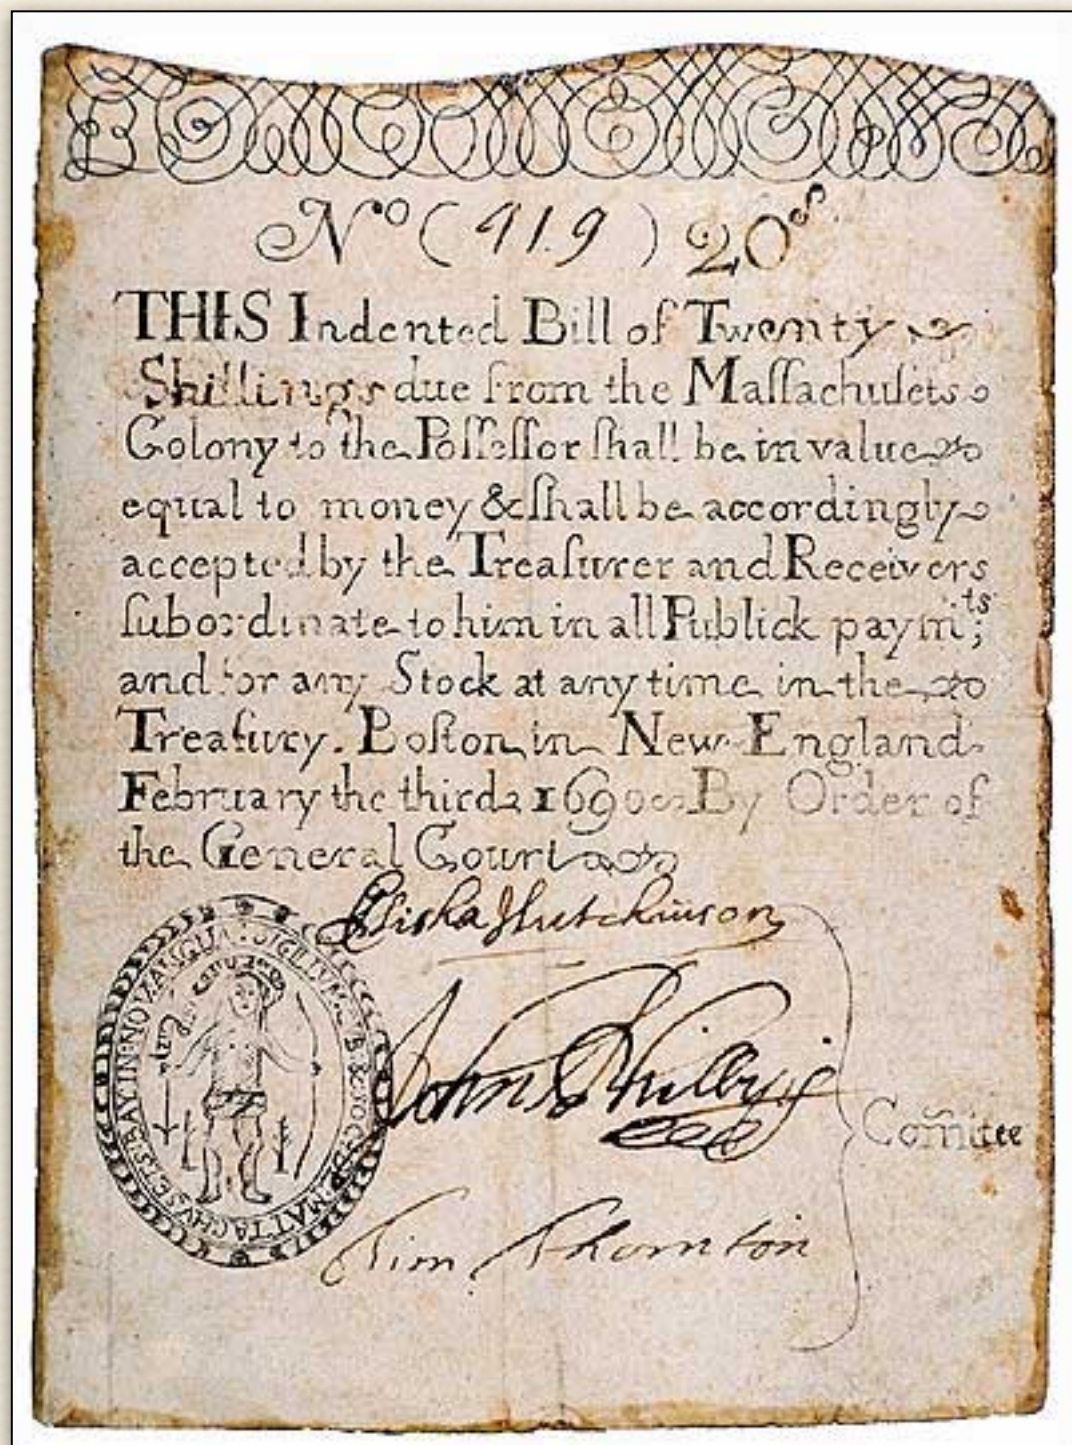 Nº (419) 20s.
THIS Indented Bill of Twenty
Shillings due from the Maſſachuſets
Colony to the Poſſeſſor ſhall be in value
equal to money & ſhall be accordingly
accepted by the Treaſurer and Receivers
ſubordinate to him in all Publick paymts;
and for any Stock at any time in the
Treaſury. Boſton in New England
February the third 1690 By Order of
the General Court
Elisha Hutchinson
John Phillips
Tim Thornton
Com̃itee
SIGILLVM
IN NOVA
MATTACHVSETS BAY